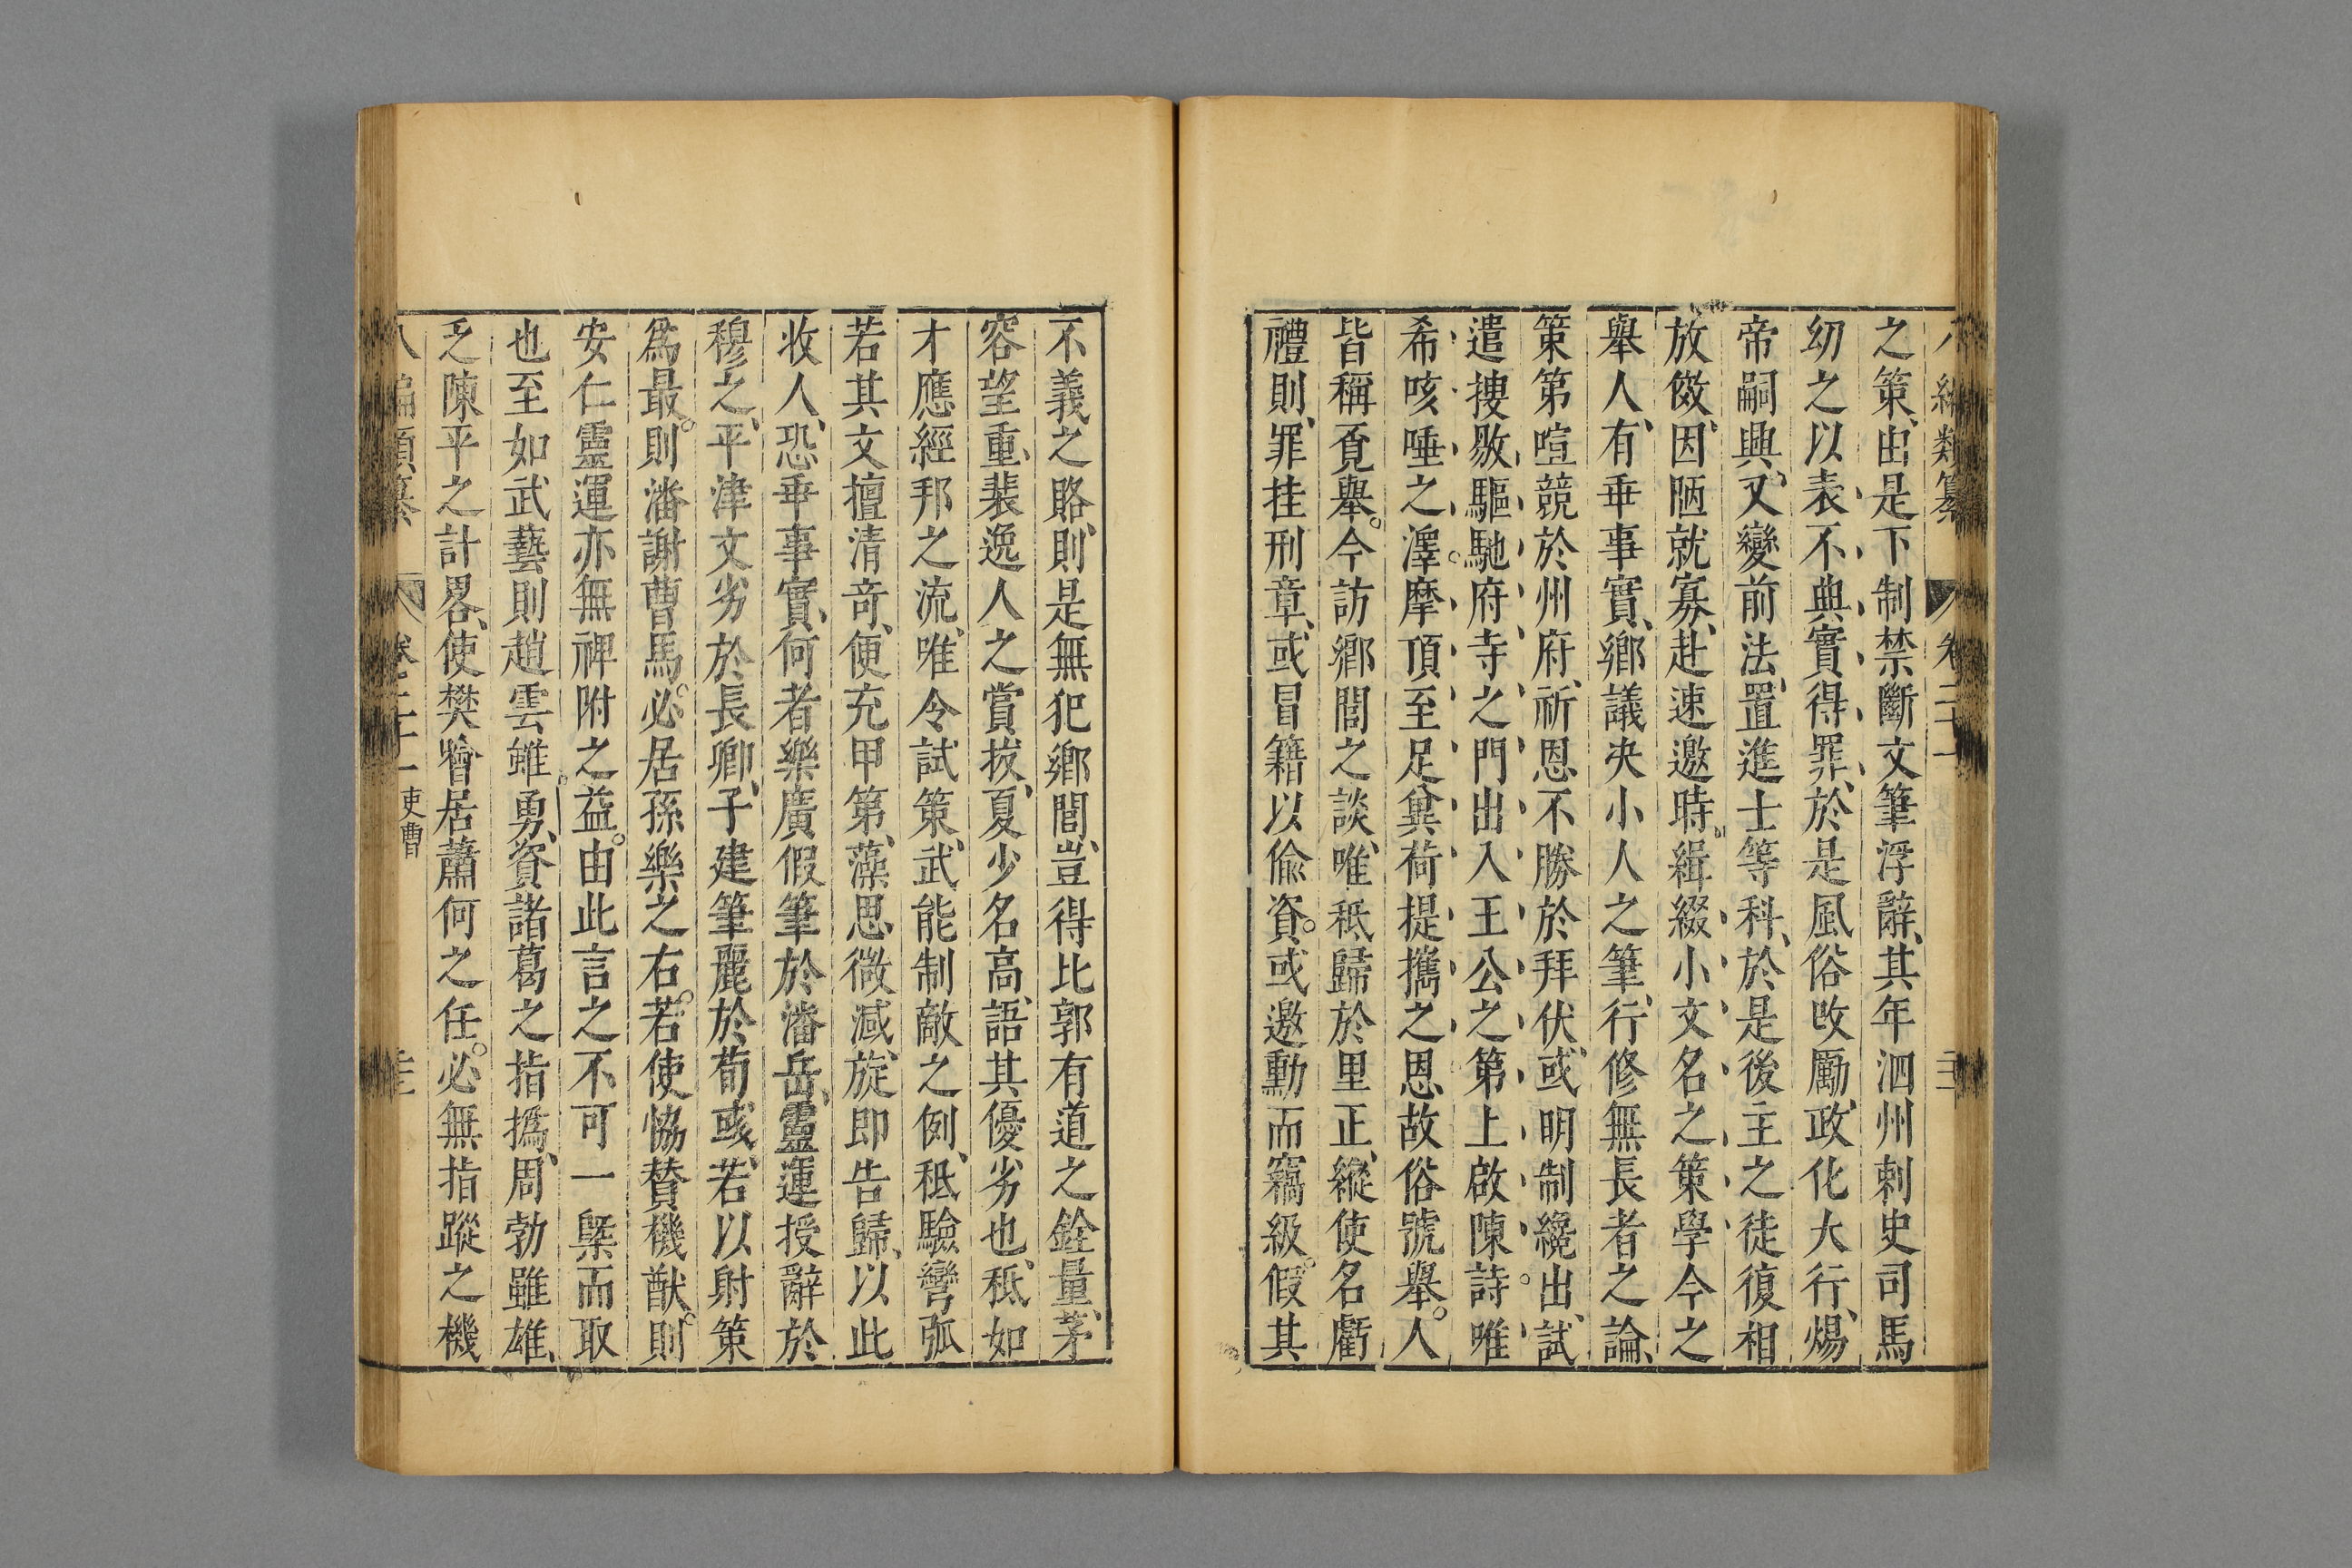 八編類纂 卷二十一
之策由是下制禁斷文筆浮辭其年泗州刺史司馬
幼之以表不典實得罪於是風俗改勵政化大行煬
帝嗣興又變前法置進士等科於是後主之徒復相
放傚因陋就寡赴速邀時緝綴小文名之策學今之
舉人有乖事實鄉議决小人之筆行修無長者之論
策第喧競於州府祈恩不勝於拜伏或明制纔出試
遣搜敭驅馳府寺之門出入王公之第上啟陳詩唯
希咳唾之澤摩頂至足冀荷提攜之恩故俗號舉人
皆稱覔舉今訪鄉閭之談唯秪歸於里正縱使名虧
禮則罪挂刑章或冒籍以偷資或邀勳而竊級假其
不義之賂則是無犯鄉閭豈得比郭有道之銓量茅
容望重裴逸人之賞拔夏少名高語其優劣也秪如
才應經邦之流唯令試策武能制敵之例秪驗彎弧
若其文擅清奇便充甲第藻思微减旋即告歸以此
收人恐乖事實何者樂廣假筆於潘岳靈運授辭於
穆之平津文劣於長卿子建筆麗於荀彧若以射策
爲最則潘謝曹馬必居孫樂之右若使恊賛機猷則
安仁靈運亦無裨附之益由此言之不可一槩而取
也至如武藝則趙雲雖勇資諸葛之指撝周勃雖雄
乏陳平之計畧使樊噲居蕭何之任必無指蹤之機
八編類纂 卷二十一 吏曹